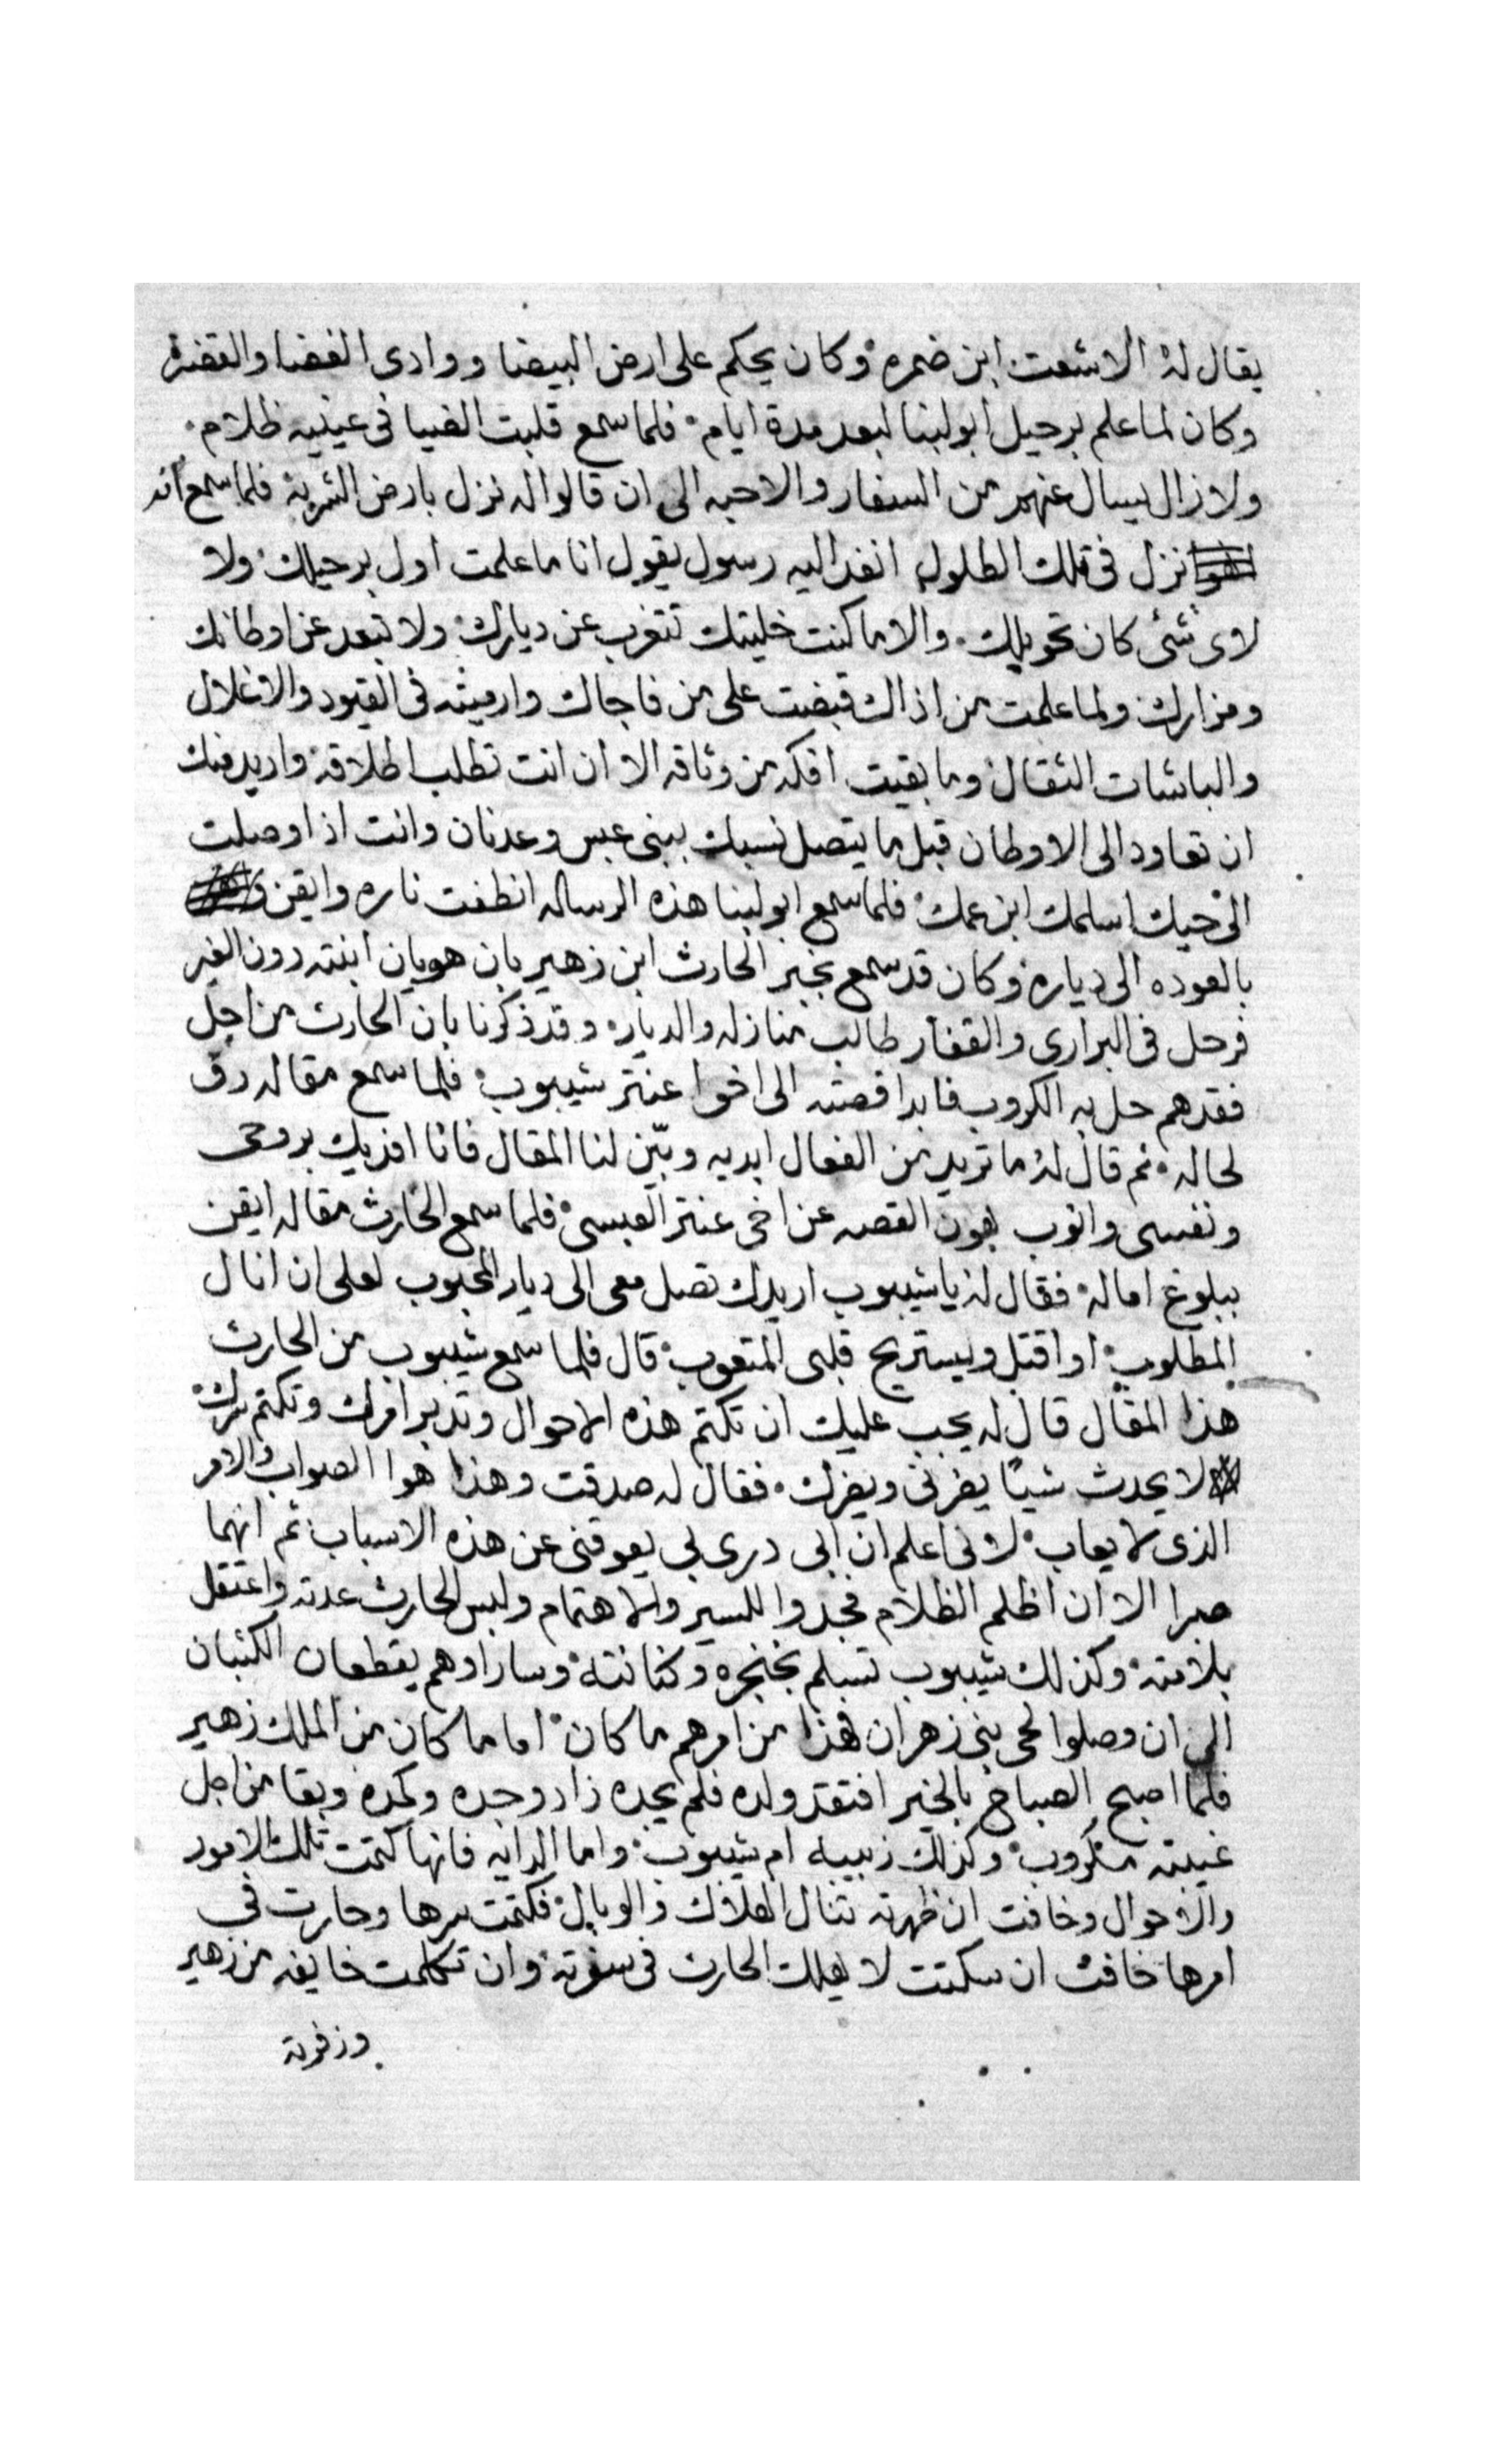 يقال له الاشعت ابن ضمره وكان يحكم على ارض البيضا ووادى الغضا والقضه
وكان لما علم برحيل ابو لبنا لبعد مدة ايام فلما سمع قلبت الضيا فى عينيه ظلام
ولا زال يسال عنهم من السفار والاحبه الى ان قالوا له نزل بارض الشربة فلما سمع انه
نزل فى تلك الطلول انفد اليه رسول يقول انا ما علمت اول برحيلك ولا
لاى شئ كان تحويلك والا ما كنت خليتك تتغرب عن ديارك ولا تبعد عن اوطانك
ومزارك ولما علمت من اذاك قبضت على من فاجاك وارميته فى القيود والاغلال
والباشات الثقال وما بقيت افكه من وثاقه الا ان انت تطلب اطلاقه واريد منك
ان تعاود الى الاوطان قبل ما يتصل نسبك ببنى عبس وعدنان وانت اذا وصلت
الى حيك اسلمك ابن عمك فلما سمع ابو لبنا هذه الرساله انطفت ناره وايقن
بالعوده الى دياره وكان قد سمع بخبر الحارث ابن زهير بان هويان ابنته دون الغير
فرحل فى البرارى والقفار طالب منازله والديار وقد ذكرنا بان الحارث من اجل
فقدهم حل به الكروب فابدا قصته الى اخوا عنتر شيبوب فلما سمع مقاله رق
لحاله ثم قال له ما تريد من الفعال ابديه وبيّن لنا المقال فانا افديك بروحى
ونفسى وانوب بهون القصه عن اخى عنتر العبسى فلما سمع الحارث مقاله ايقن
ببلوغ اماله فقال له يا شيبوب اريدك تصل معى الى ديار المحبوب لعلى ان انال
المطلوب او اقتل ويستريح قلبى المتعوب قال فلما سمع شيبوب من الحارث
هذا المقال قال له يجب عليك ان تكتم هذه الاحوال وتدبر امرك وتكتم سرك
لا يحدث شيًا يضرنى ويضرك فقال له صدقت وهذا هوا الصواب والامر
الذى لا يعاب لانى اعلم ان ابى درى بى يعوقنى عن هذه الاسباب ثم انهما
صبرا الا ان اظلم الظلام فجدوا للسير والاهتمام ولبس الحارث عدته واعتقل
بلامته وكذلك شيبوب تسلم بخنجره وكنانته وسارا وهم يقطعان الكثبان
الى ان وصلوا لحى بنى زهران هذا من امرهم ما كان اما ما كان من الملك زهير
فلما اصبح الصباح بالخير افتقد ولده فلم يجده زاد وجده وكمده وبقا من اجل
غيبته مكروب وكذلك زبيبه ام شيبوب واما الدايه فانها كتمت تلك الامور
والاحوال وخافت ان ظهرته تنال الهلاك والوبال فكتمت سرها وحارت فى
امرها خافت ان سكتت لا يهلك الحارث فى سفرته وان تكلمت خايفه من زهير
وزفرته